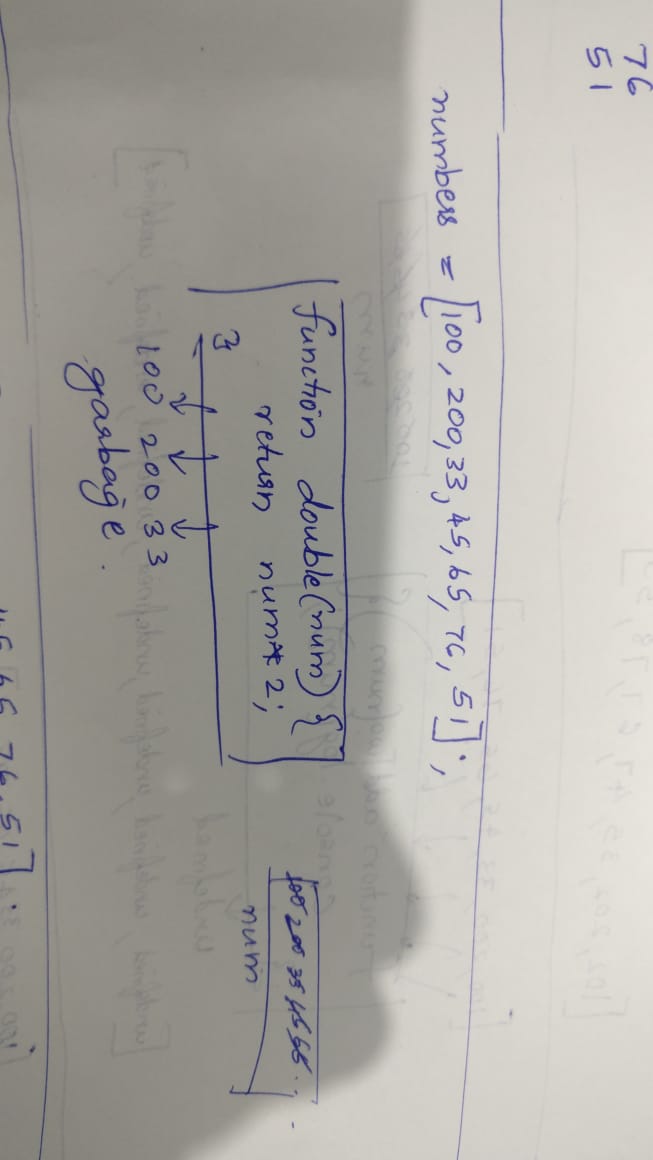 76
51
numbers = [100, 200, 33, 45, 65, 76, 51];
function double(num) {
return num * 2;
}
100 200 33
garbage.
100 200 33 45 65 ...
num
65 76, 51];